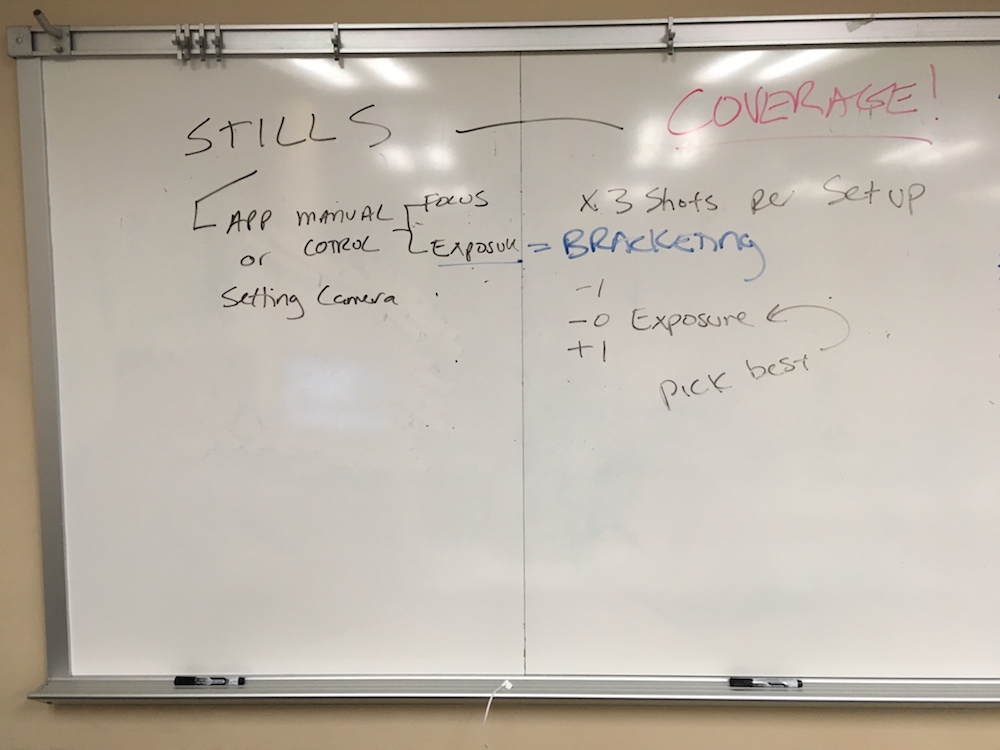 STILLS — COVERAGE!
APP MANUAL FOCUS
COTROL EXPOSURE = BRACKETING
or
Setting Camera
x 3 Shots Per Set up
-1
-0 Exposure
+1
pick best